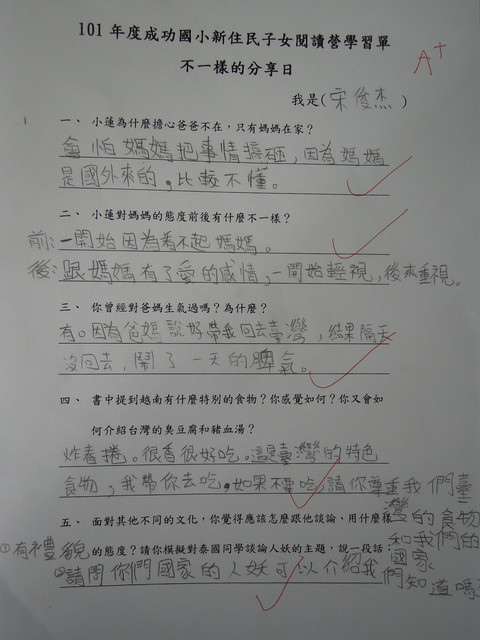 101 年度成功國小新住民子女閱讀營學習單
不一樣的分享日
A+
我是(宋俊杰)
一、 小蓮為什麼擔心爸爸不在，只有媽媽在家？
會怕媽媽把事情搞砸，因為媽媽
是國外來的，比較不懂。
二、 小蓮對媽媽的態度前後有什麼不一樣？
前：一開始因為看不起媽媽。
後：跟媽媽有了愛的感情，一開始輕視，後來重視。
三、 你曾經對爸媽生氣過嗎？為什麼？
有。因為爸媽說好帶我回去臺灣，結果隔天
沒回去，鬧了一天的脾氣。
四、 書中提到越南有什麼特別的食物？你感覺如何？你又會如
何介紹台灣的臭豆腐和豬血湯？
炸春捲。很香很好吃。這是臺灣的特色
食物，我帶你去吃。如果不要吃，請你尊重我們臺
灣的食物
和我們的
國家
五、 面對其他不同的文化，你覺得應該怎麼跟他談論、用什麼樣
①有禮貌的態度？請你模擬對泰國同學談論人妖的主題，說一段話：
②請問你們國家的人妖可以介紹我們知道嗎